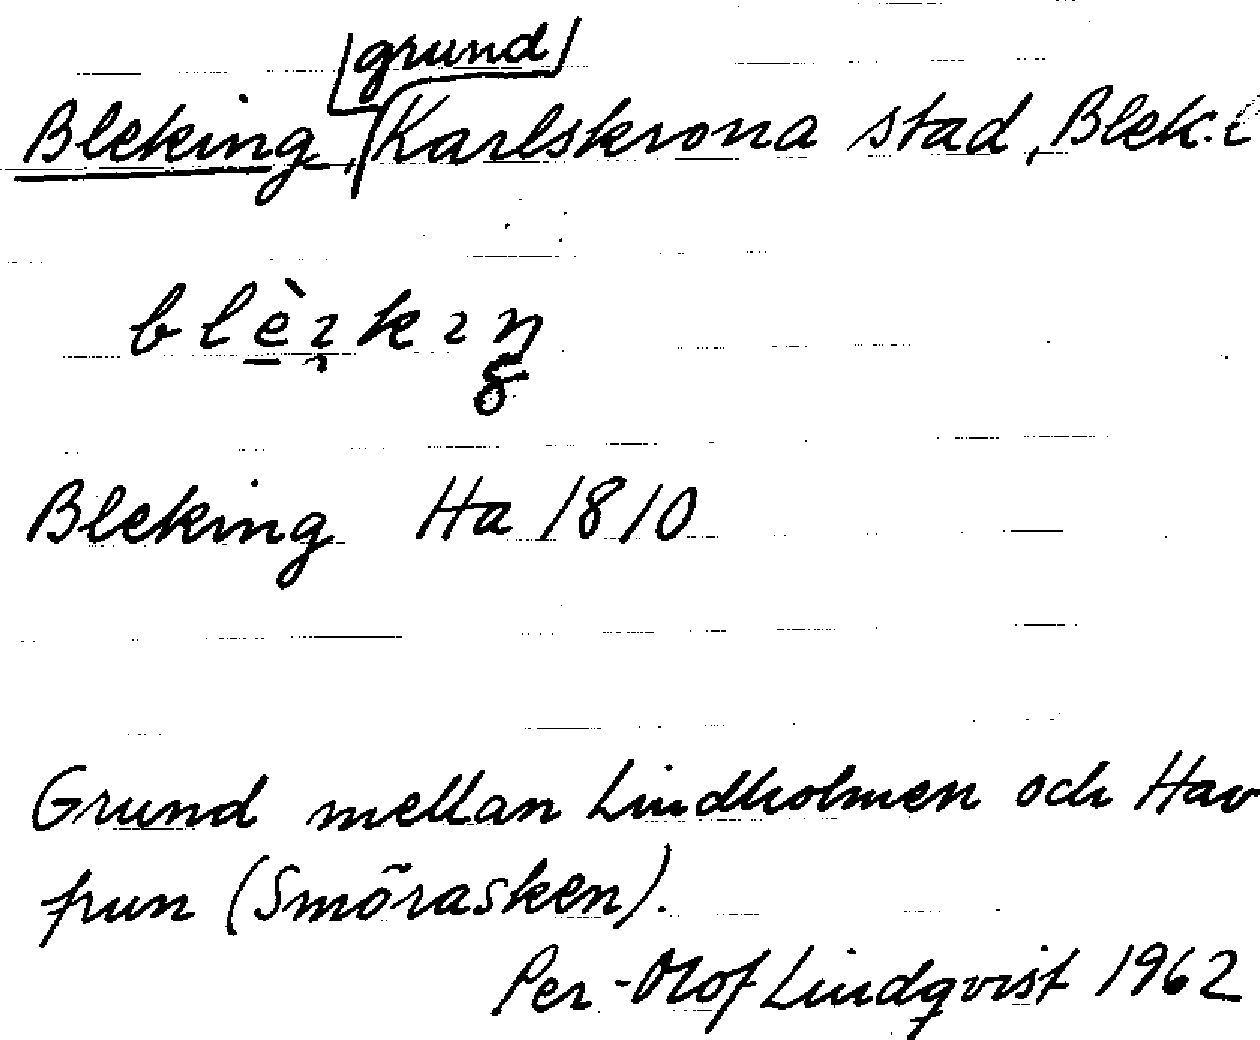 grund
Bleking, Karlskrona stad, Blek. l
Bleking Ha 1810
Grund mellan Lindholmen och Hav
frun (Smörasken).
Per-Olof Lindqvist 1962